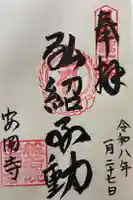 奉拝
令和八年
一月二十七日
弘紹不動
安田寺